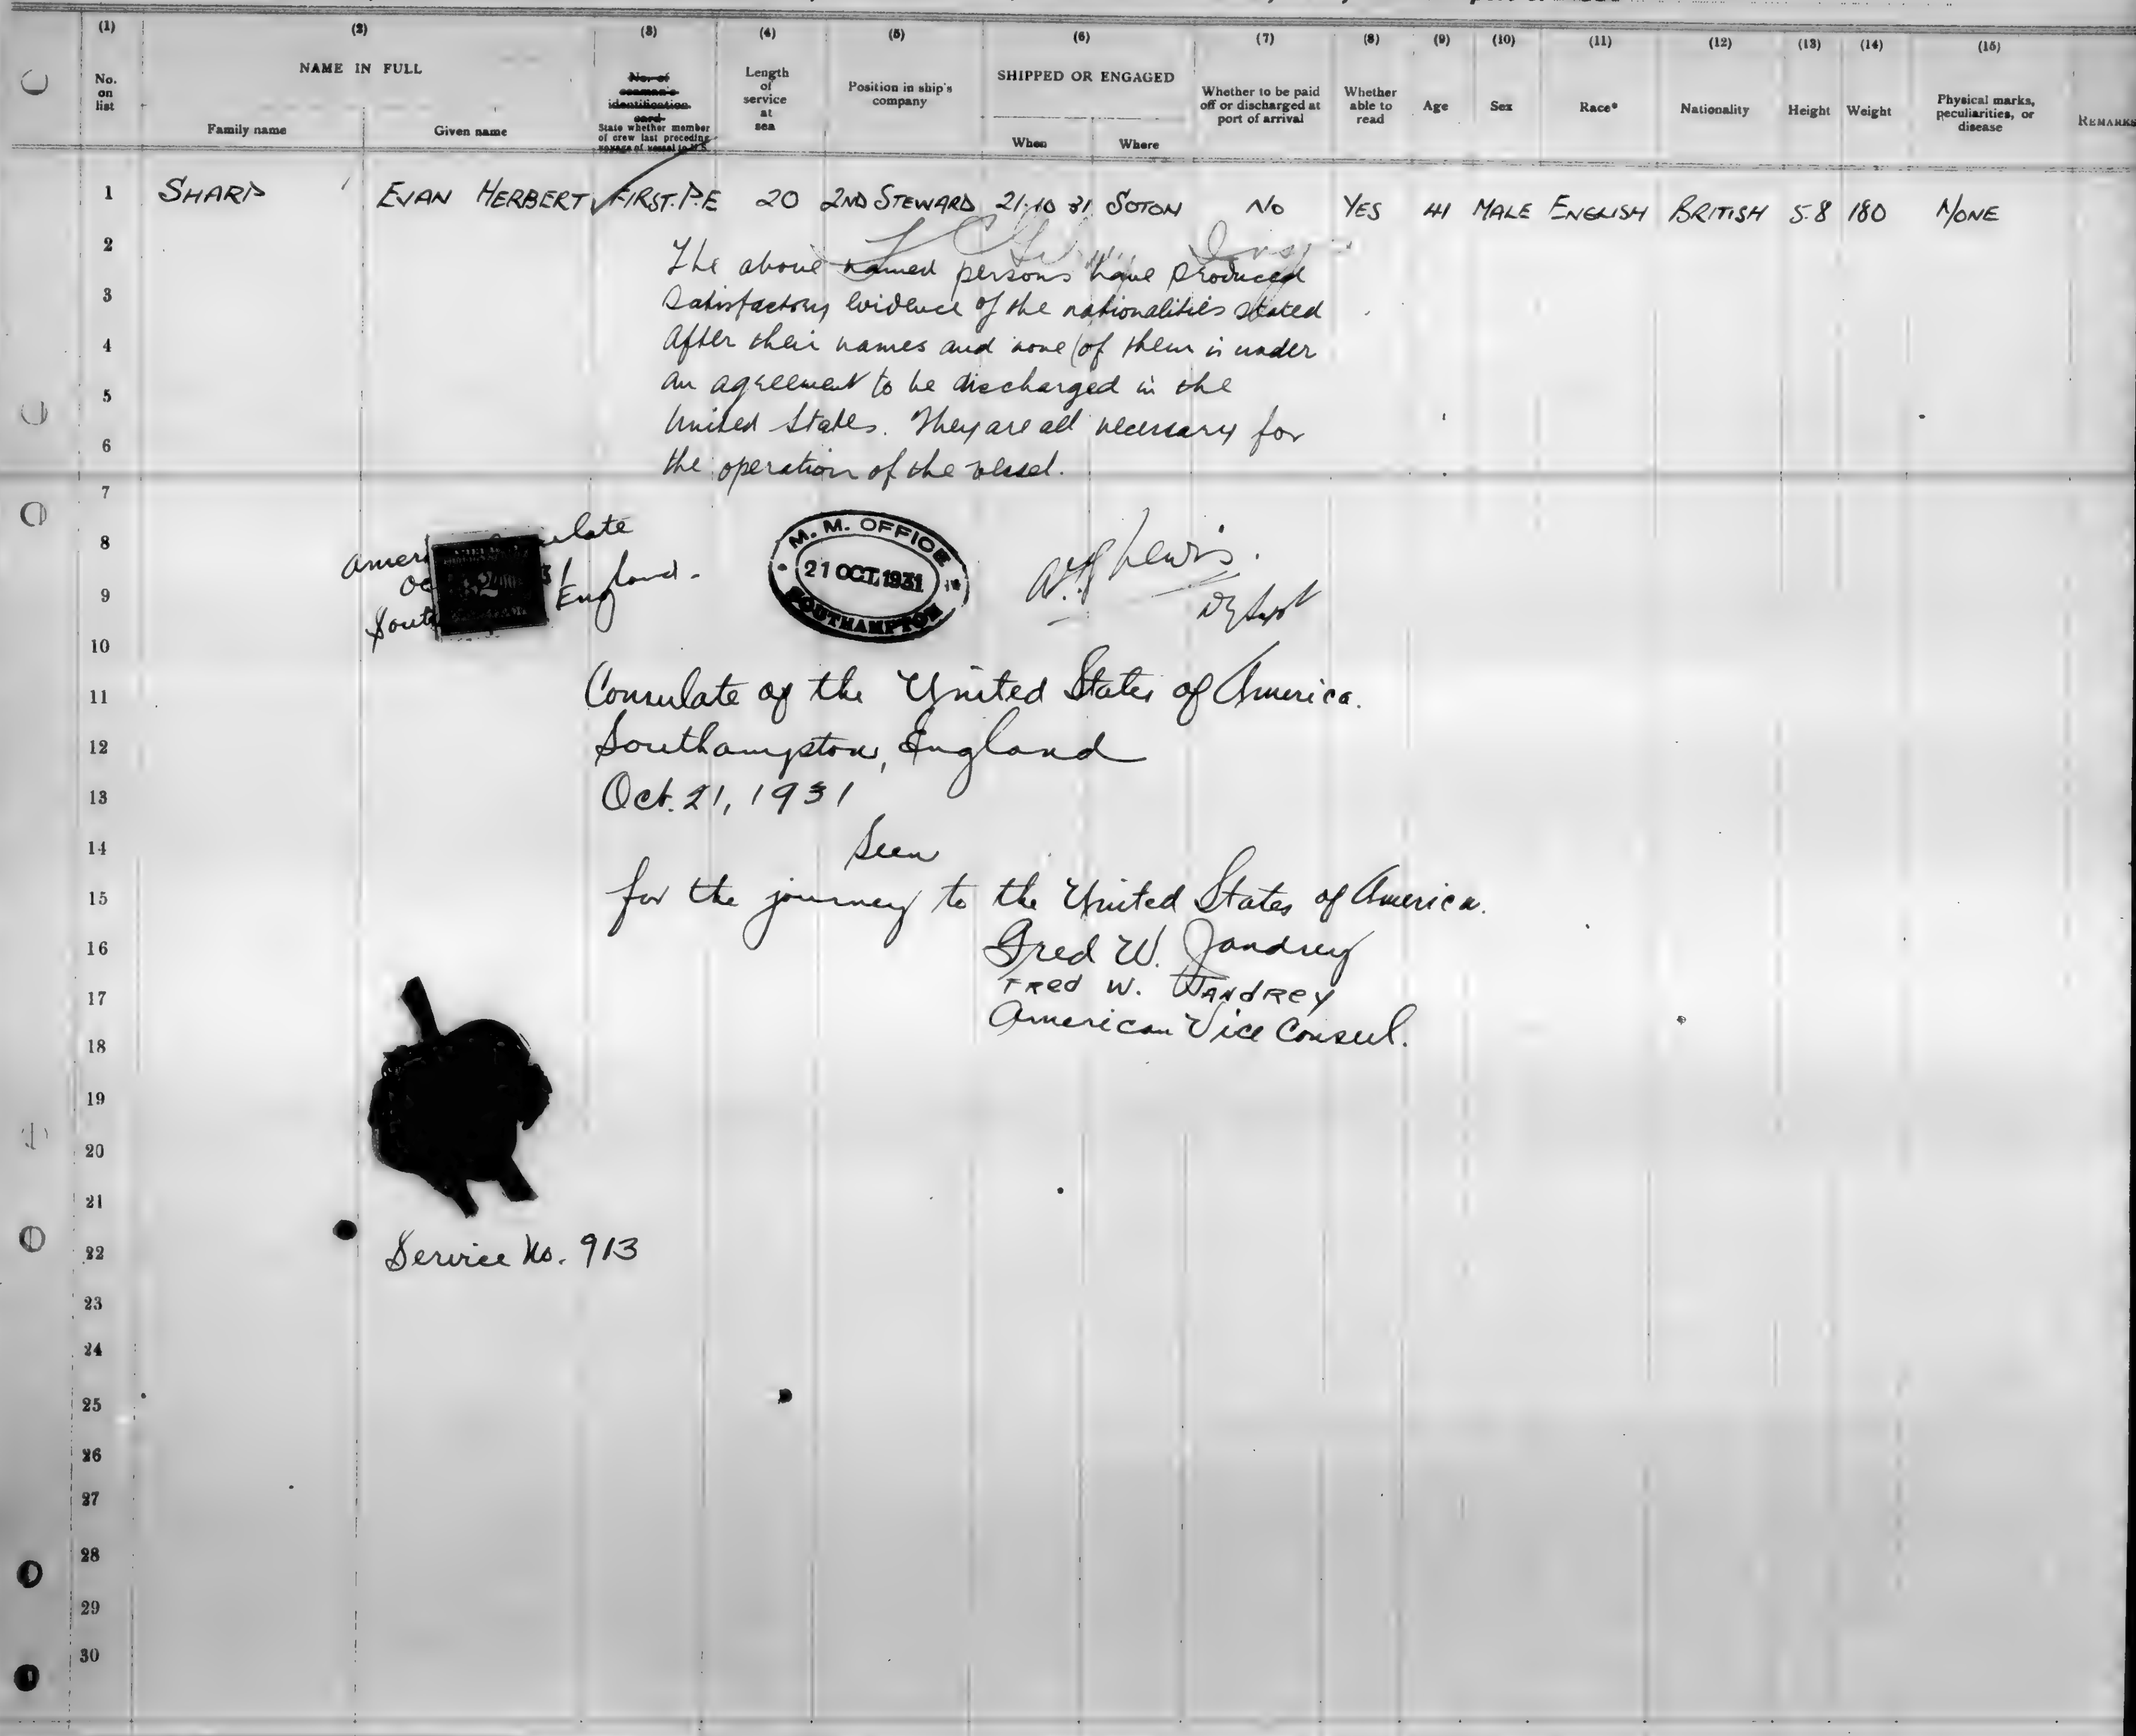 (1) (2) (3) (4) (5) (6) (7) (8) (9) (10) (11) (12) (13) (14) (15)
No. on list
NAME IN FULL
Family name
Given name
No. of seaman's identification card
State whether member of crew last preceding voyage of vessel to U.S.
Length of service at sea
Position in ship's company
SHIPPED OR ENGAGED
When
Where
Whether to be paid off or discharged at port of arrival
Whether able to read
Age
Sex
Race*
Nationality
Height
Weight
Physical marks, peculiarities, or disease
REMARKS
1 SHARP EVAN HERBERT FIRST. P.E 20 2ND STEWARD 21.10 31 SOTON NO YES 41 MALE ENGLISH BRITISH 5.8 180 NONE
2
The above named persons have produced
3 satisfactory evidence of the nationalities stated
4 after their names and none of them is under
5 an agreement to be discharged in the
6 United States. They are all necessary for
the operation of the vessel.
7
8
England.
M. M. OFFICE
21 OCT. 1931
SOUTHAMPTON
Lewis.
9
10
11 Consulate of the United States of America.
12 Southampton, England
13 Oct. 21, 1931
14 Seen
15 for the journey to the United States of America.
16 Fred W. Jandrey
17 FRed W. JANdRey
American Vice Consul.
18
19
20
21
22 Service No. 913
23
24
25
26
27
28
29
30